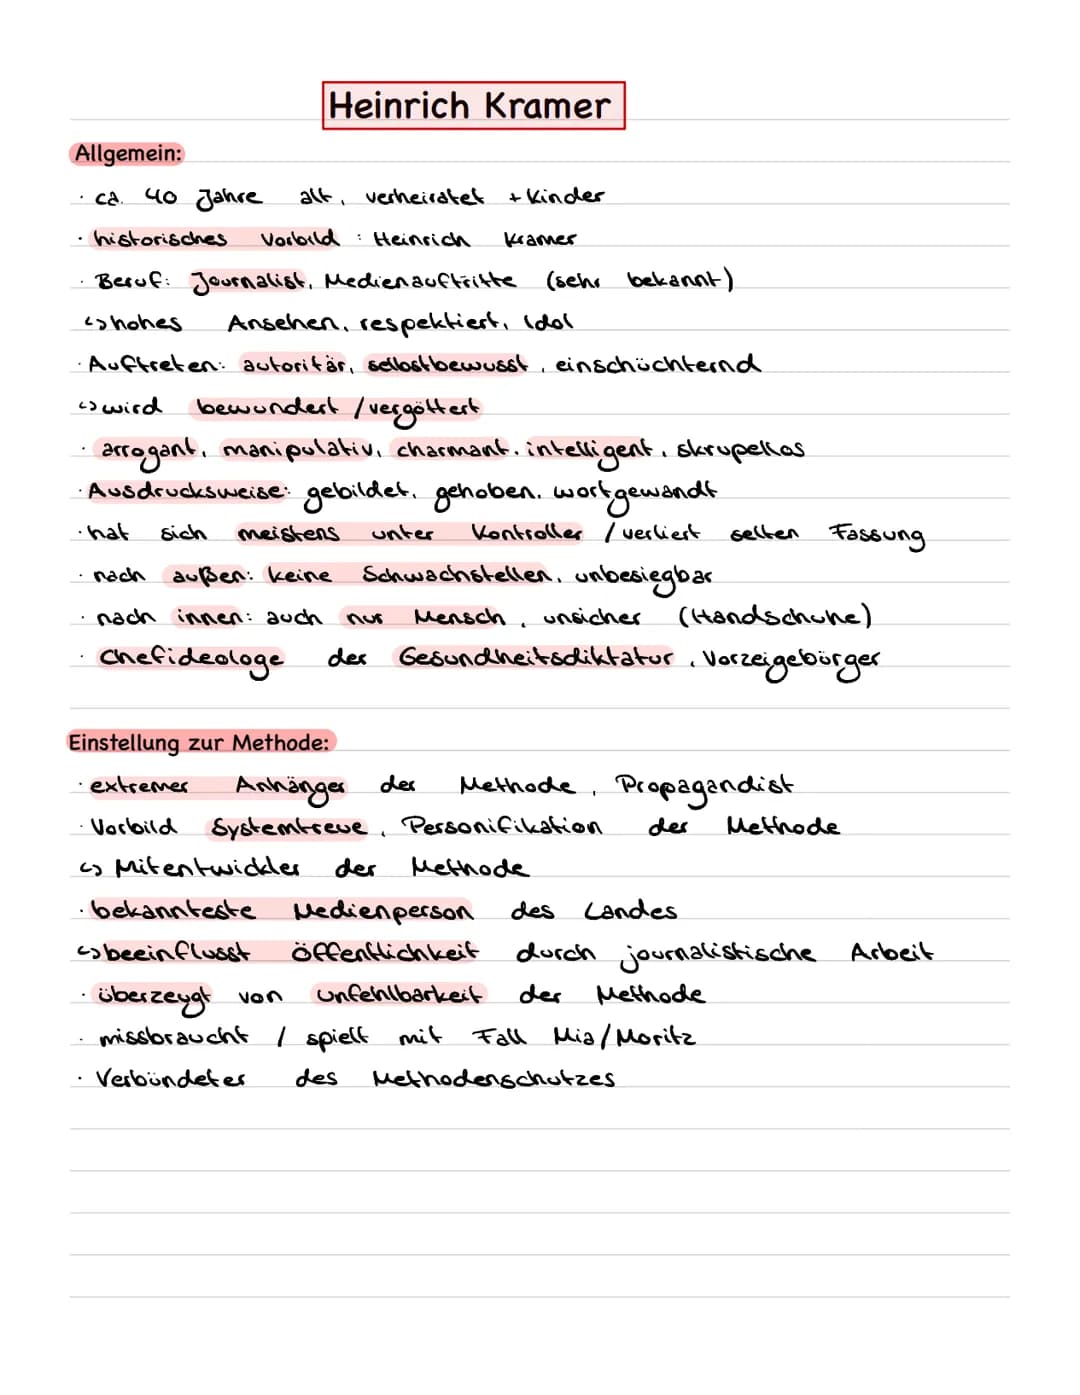 Heinrich Kramer
Allgemein:
· ca. 40 Jahre alt, verheiratet + Kinder
· historisches Vorbild : Heinrich Kramer
· Beruf: Journalist, Medienauftritte (sehr bekannt)
↳ hohes Ansehen, respektiert, Idol
· Auftreten: autoritär, selbstbewusst, einschüchternd
↳ wird bewundert / vergöttert
· arrogant, manipulativ, charmant, intelligent, skrupellos
· Ausdrucksweise: gebildet, gehoben, wortgewandt
· hat sich meistens unter Kontroller / verliert selten Fassung
· nach außen: keine Schwachstellen, unbesiegbar
· nach innen: auch nur Mensch, unsicher (Handschuhe)
· Chefideologe der Gesundheitsdiktatur, Vorzeigebürger
Einstellung zur Methode:
· extremer Anhänger der Methode, Propagandist
· Vorbild Systemtreue, Personifikation der Methode
↳ Mitentwickler der Methode
· bekannteste Medienperson des Landes
↳ beeinflusst öffentlichkeit durch journalistische Arbeit
· überzeugt von Unfehlbarkeit der Methode
· missbraucht / spielt mit Fall Mia/Moritz
· Verbündeter des Methodenschutzes